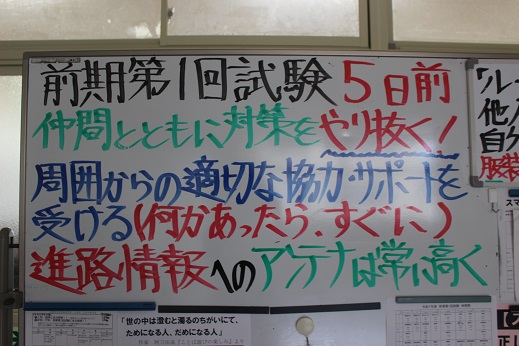 前期第1回試験 5日前
仲間とともに対策をやり抜く!
周囲からの適切な協力・サポートを
受ける(何かあったら、すぐに)
進路情報へのアンテナは常に高く
「ルー
他人
自分
服装
「世の中は澄むと濁るのちがいにて、
ためになる人、だめになる人」